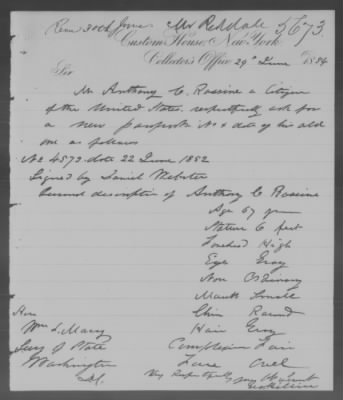 Recd 30th June Mr Reddall 5673
Custom House, New York.
Collector's Office 29th June 1854
Sir
Mr Anthony C. Rossire a Citizen
of the United States, respectfully ask for
a new passport No & date of his old
one as follows
No 4573. date 22 June 1852
Signed by Daniel Webster
General description of Anthony C Rossire
Age 57 years
Stature 6 feet
Forehead High
Eyes Gray
Nose Ordinary
Mouth Small
Chin Round
Hair Gray
Complexion Fair
Face Oval
Hon
Wm L. Marcy
Secy of State
Washington
Very Respectfully your Obt Servt